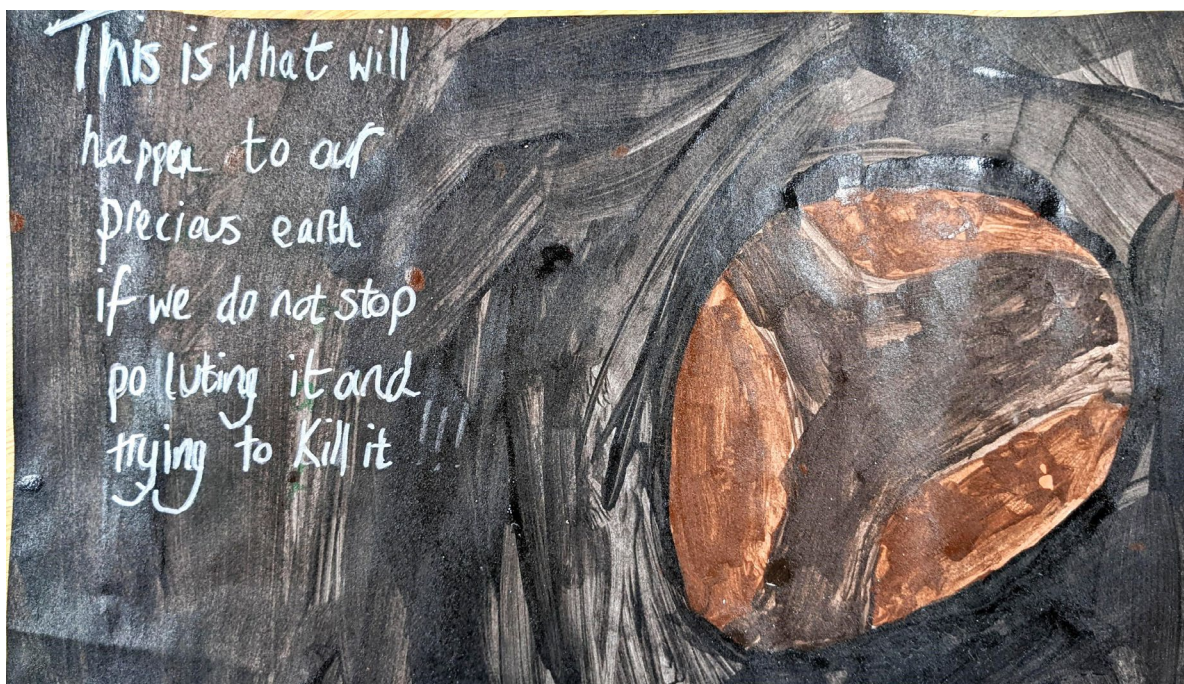 This is What will
happen to our
precious earth
if we do not stop
polluting it and
trying to Kill it